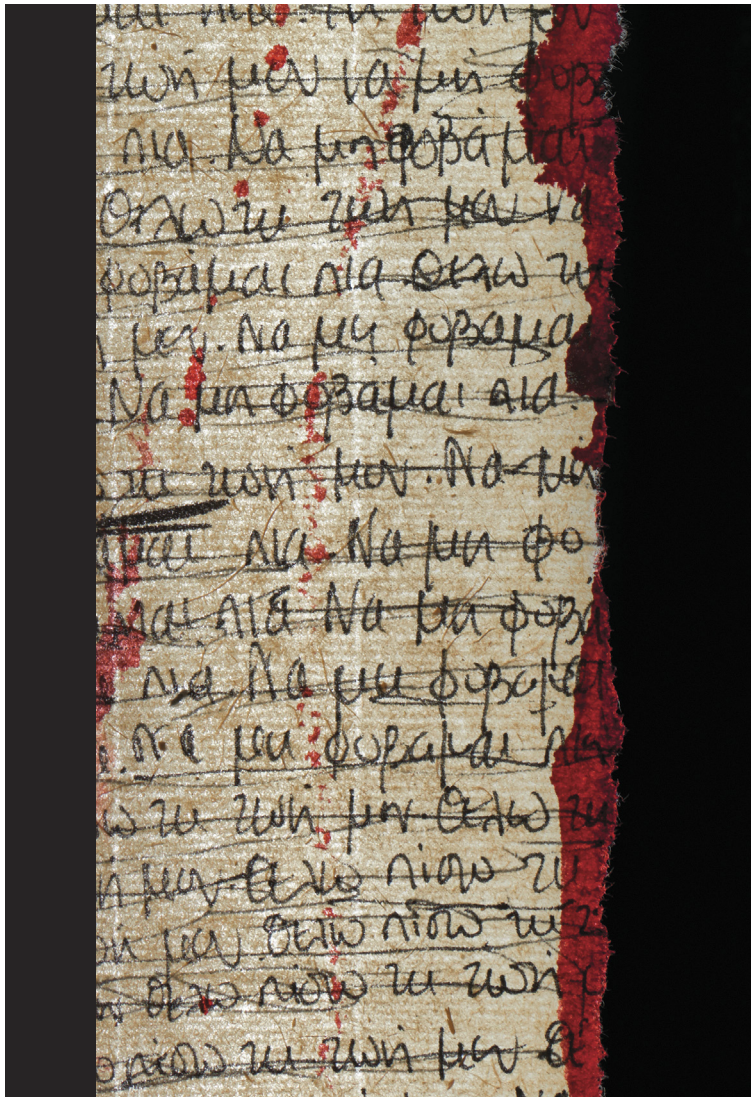 πια. τη ζωή
ζωή μου να μη φοβ
πια. Να μη φοβάμαι
Θέλω τη ζωή μου να
φοβάμαι πια Θέλω τη
μου. Να μη φοβαμα
Να μη φοβαμαι πια.
τη ζωή μου. Να μη
αμαι πια. Να μη φο
αμαι πια Να μη φοβά
πια. Να μη φοβαμαι
Να μη φοβαμαι πια
λω τη ζωή μου. Θέλω τη
ή μου. Θελω πίσω τη
ωή μου Θελω πίσω τη ζ
Θελω πίσω τη ζωή
πίσω τη ζωή μου Θέ
Να